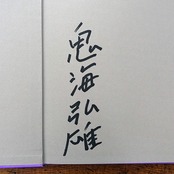 鬼海弘雄